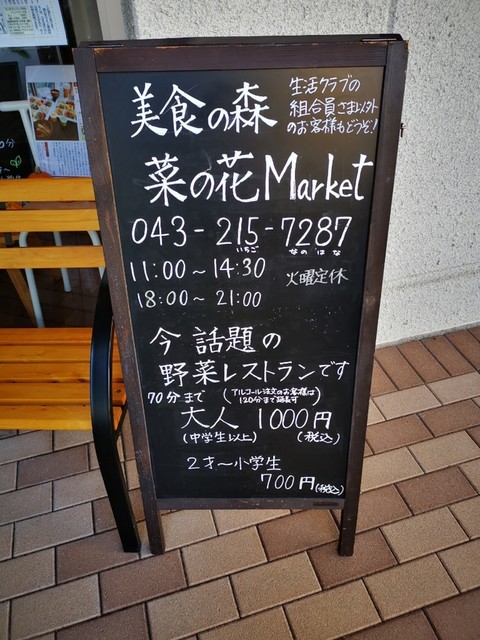 美食の森
生活クラブの
組合員さま以外
のお客様もどうぞ!
菜の花Market
043-215-7287
いちご なのはな
11:00~14:30
火曜定休
18:00~21:00
今話題の
野菜レストランです
70分まで
(アルコール注文のお客様は
120分まで延長可)
大人 1000円
(中学生以上) (税込)
2才~小学生
700円(税込)